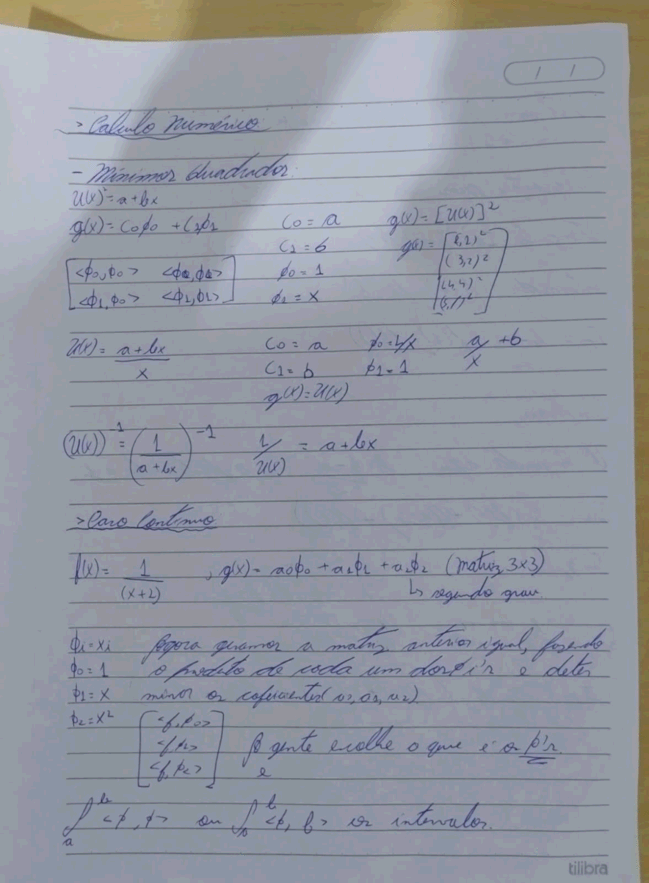 / /
> Calculo numérico
- Mínimos Quadrados
U(x)² = a+bx
g(x) = c0ϕ0 + c1ϕ1 c0 = a g(x) = [U(x)]²
c1 = b g(x) =
[<ϕ0,ϕ0> <ϕ0,ϕ1> ϕ0 = 1
<ϕ1,ϕ0> <ϕ1,ϕ1>] ϕ1 = x
U(x) = (a+bx)/x c0 = a ϕ0 = 1/x a/x + b
c1 = b ϕ1 = 1
g(x) = U(x)
(U(x))⁻¹ = (1/(a+bx))⁻¹ 1/U(x) = a+bx
> Caso Contínuo
f(x) = 1/(x+2) , g(x) = a0ϕ0 + a1ϕ1 + a2ϕ2 (matriz 3x3)
↳ segundo grau
ϕi = xi Agora geramos a matriz anterior igual, fazendo
ϕ0 = 1 o produto de cada um dos ϕi's e deter
ϕ1 = x minar os coeficientes (a0, a1, a2)
ϕ2 = x²
[<f,ϕ0>
<f,ϕ1>
<f,ϕ2>] A gente escolhe o que é os ϕ's.
e
∫ₐᵇ <ϕ,ϕ> ou ∫ₐᵇ <ϕ,f> os intervalos.
tilibra